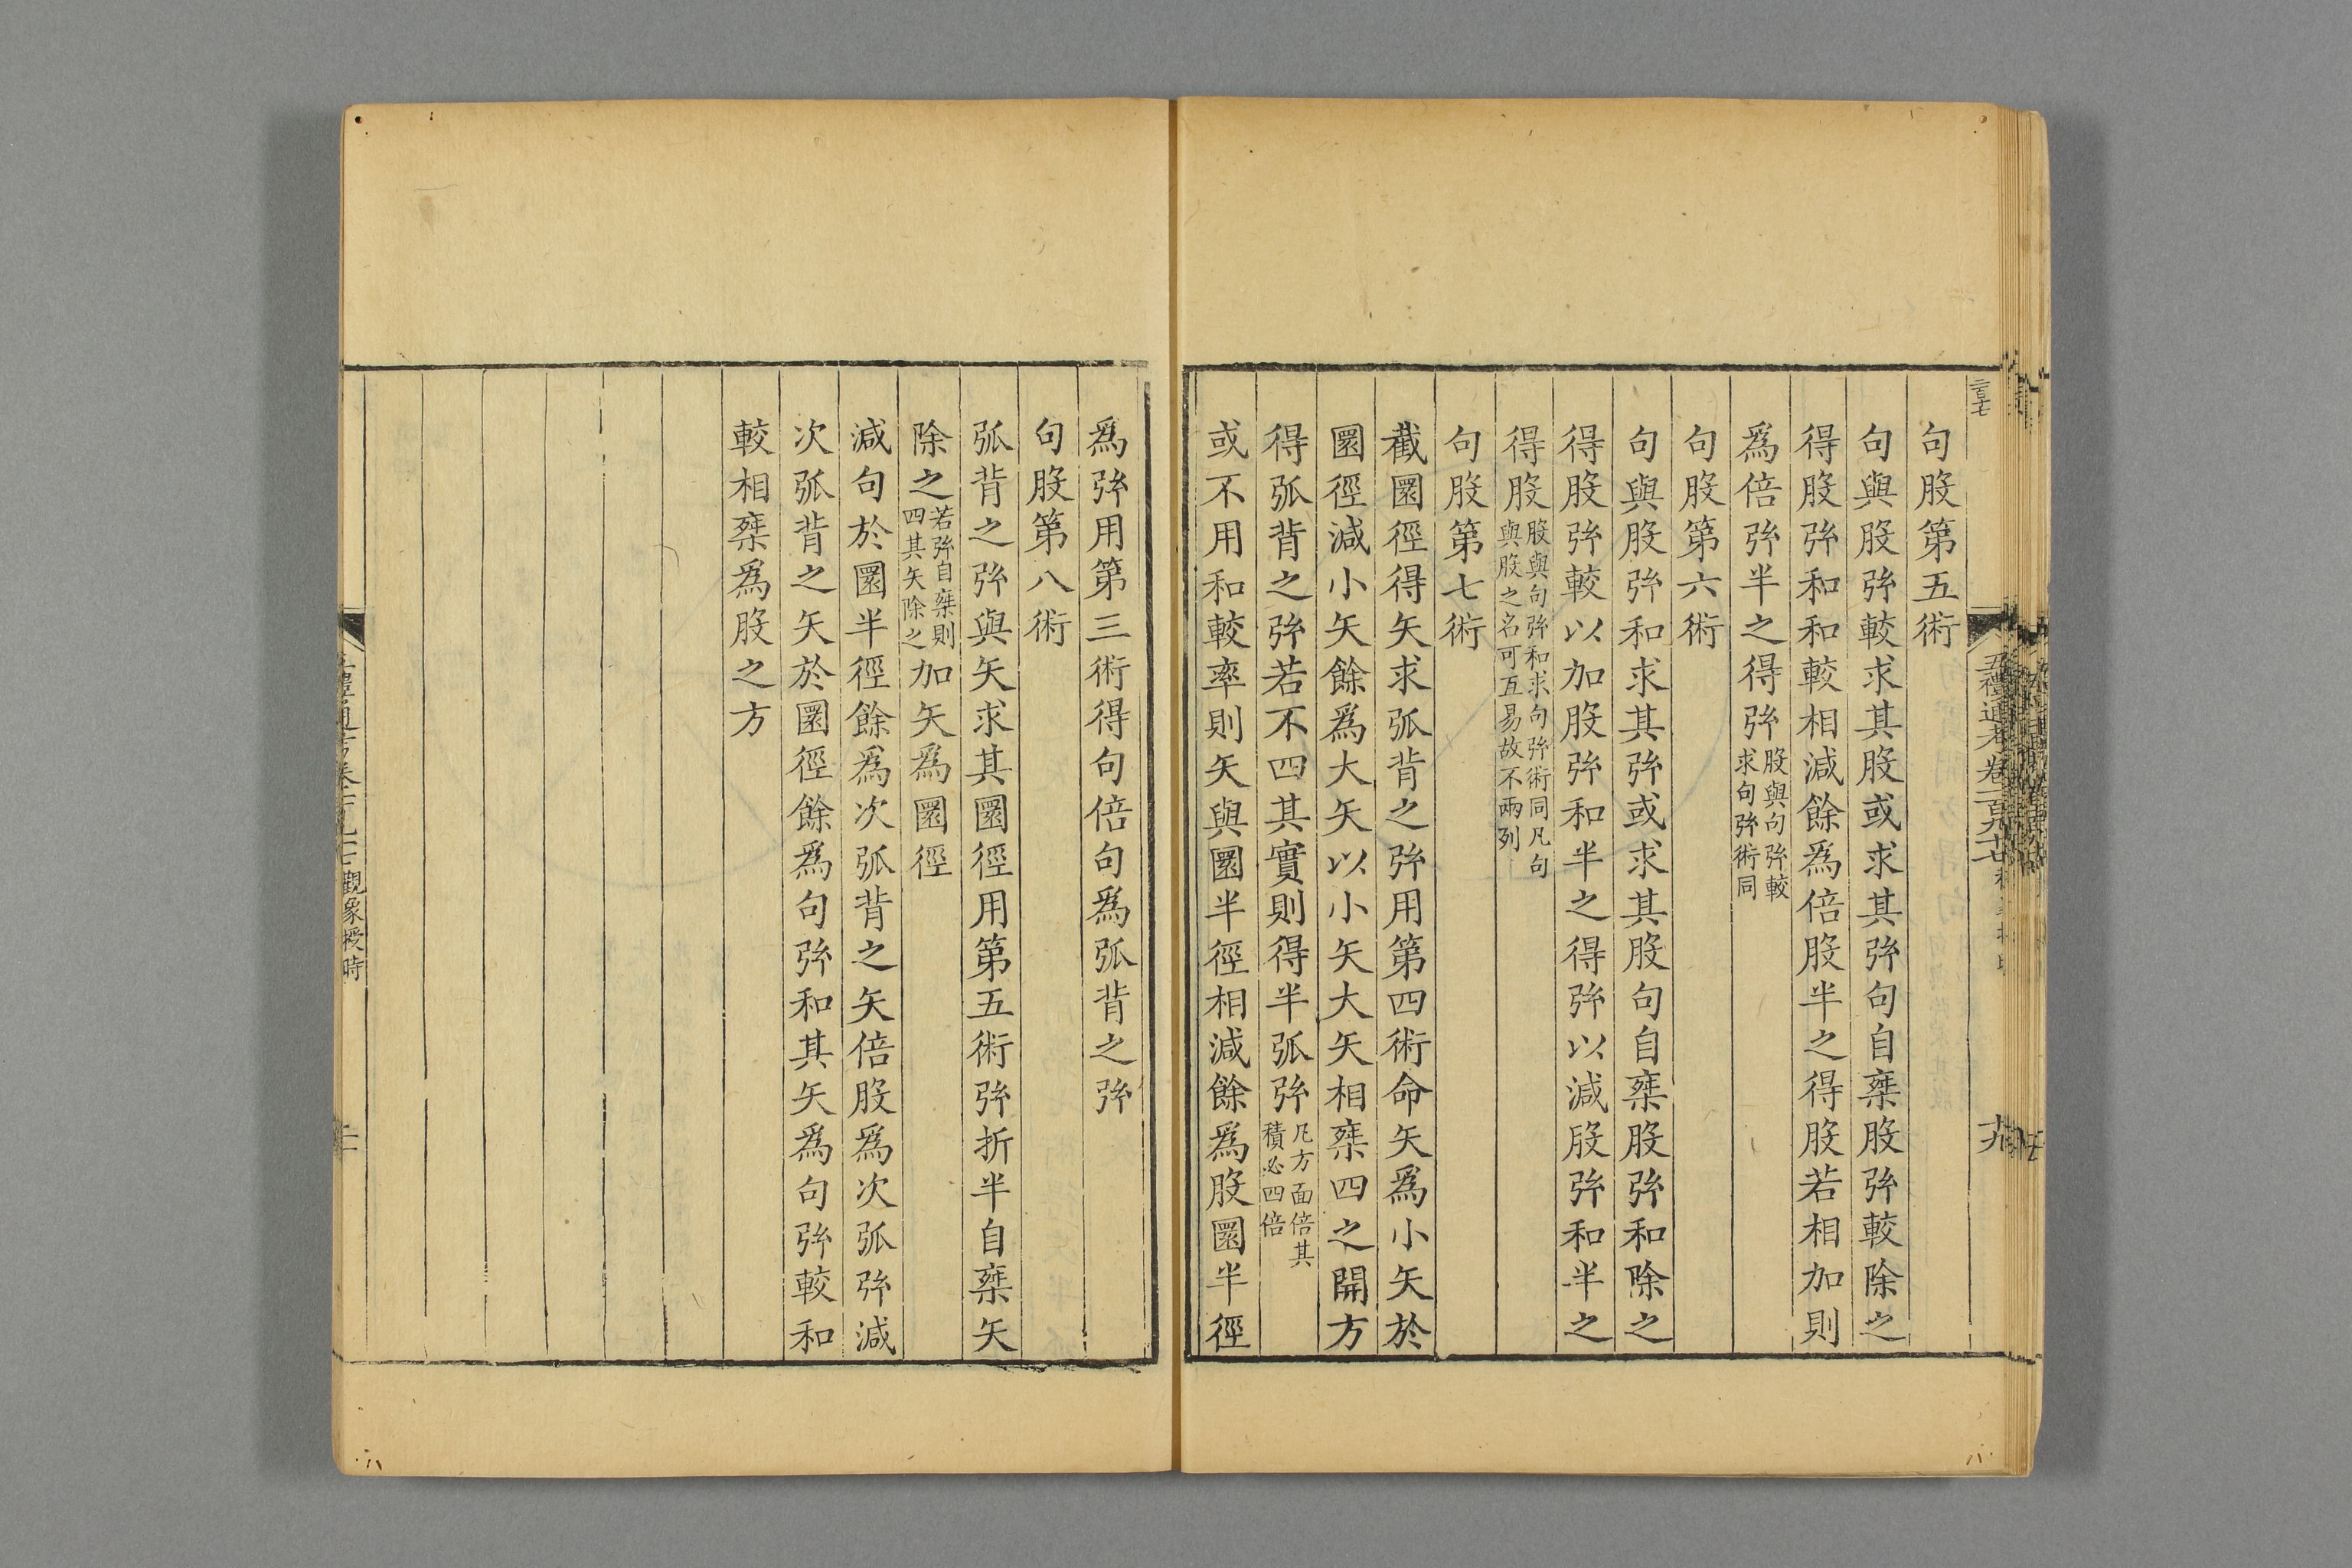 句股第五術
句與股弦較求其股或求其弦句自乘股弦較除之
得股弦和和較相減餘爲倍股半之得股若相加則
爲倍弦半之得弦股與句弦較求句弦術同
句股第六術
句與股弦和求其弦或求其股句自乘股弦和除之
得股弦較以加股弦和半之得弦以減股弦和半之
得股股與句弦和求句弦術同凡句與股之名可互易故不兩列
句股第七術
截圜徑得矢求弧背之弦用第四術命矢爲小矢於
圜徑減小矢餘爲大矢以小矢大矢相乘四之開方
得弧背之弦若不四其實則得半弧弦凡方面倍其積必四倍
或不用和較率則矢與圜半徑相減餘爲股圜半徑
爲弦用第三術得句倍句爲弧背之弦
句股第八術
弧背之弦與矢求其圜徑用第五術弦折半自乘矢
除之若弦自乘則四其矢除之加矢爲圜徑
減句於圜半徑餘爲次弧背之矢倍股爲次弧弦減
次弧背之矢於圜徑餘爲句弦和其矢爲句弦較和
較相乘爲股之方
二百十七
五禮通考卷一百九十七
十九
觀象授時